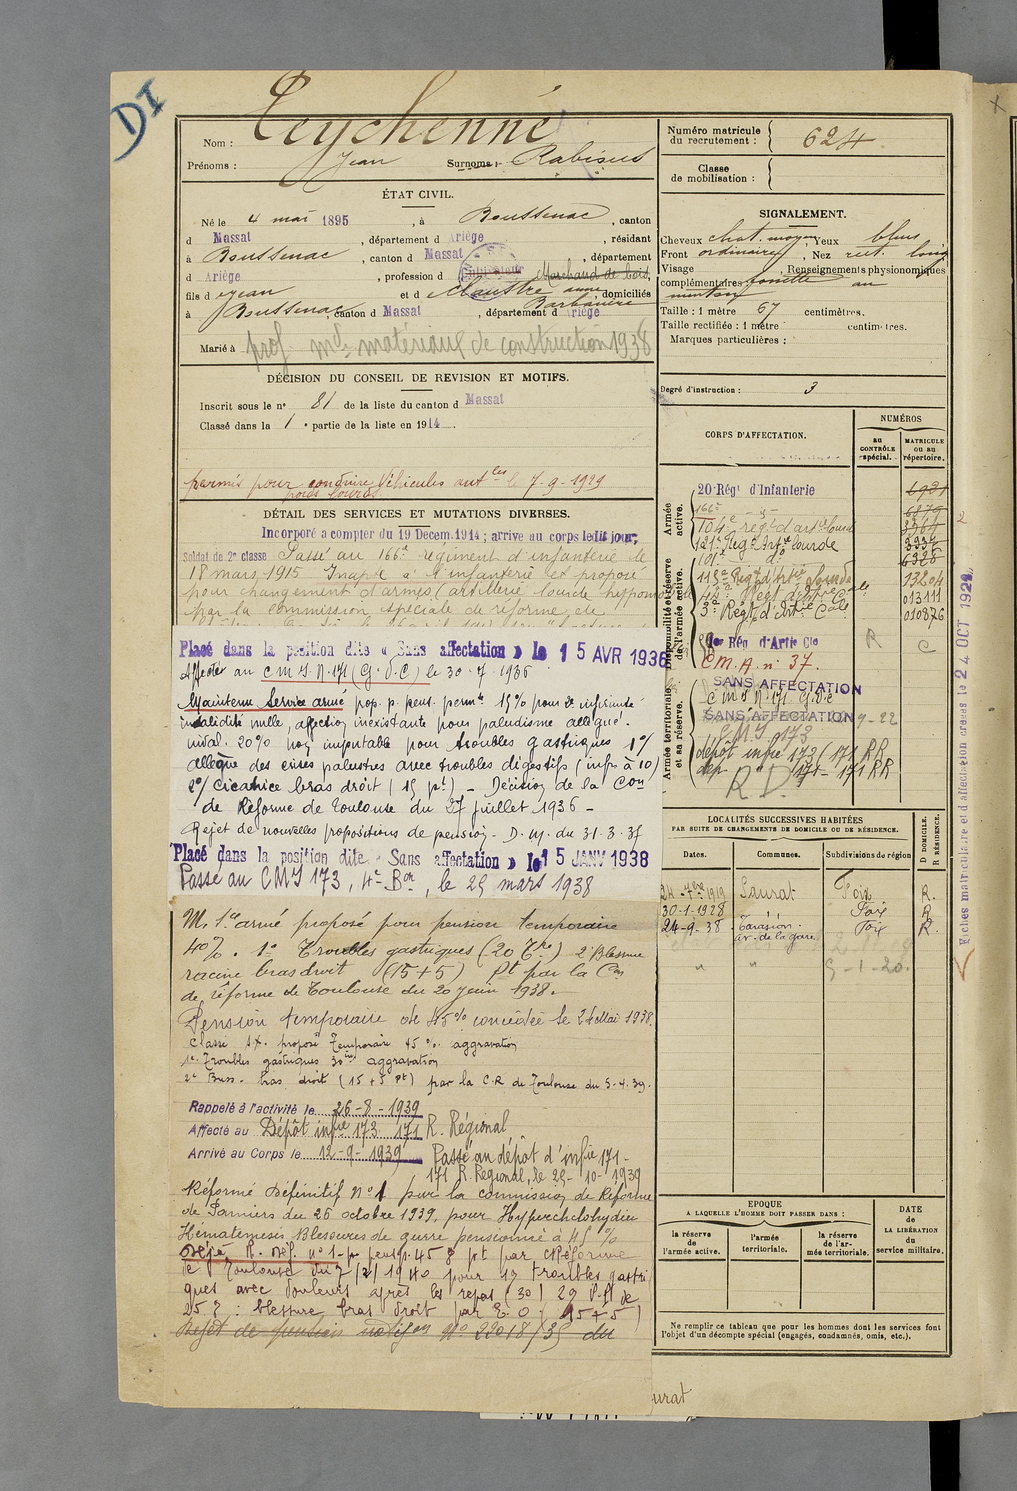 DI
Teychenné
Nom :
Prénoms : Jean Surnoms : Rabisus
ÉTAT CIVIL.
Né le 4 mai 1895, à Boussenac, canton
d Massat, département d Ariège, résidant
à Boussenac, canton d Massat, département
d Ariège, profession d Cultivateur Marchand de bois,
fils d e Jean et d e Claustre anne, domiciliés
Barbanère
à Boussenac, canton d Massat, département d Ariège
Marié à prof md matériaux de construction 1938
DÉCISION DU CONSEIL DE REVISION ET MOTIFS.
Inscrit sous le n° 81 de la liste du canton d Massat
Classé dans la 1e partie de la liste en 1914.
permis pour conduire Véhicules aut les le 7-9-1929
poids lourds
DÉTAIL DES SERVICES ET MUTATIONS DIVERSES.
Incorporé a compter du 19 Decem. 1914 ; arrive au corps ledit jour;
Soldat de 2e classe Passé au 166e régiment d'infanterie le
18 mars 1915 Inapte à l'infanterie et proposé
pour changement d'armes (artillerie lourde hippomobile
par la commission spéciale de réforme de
Placé dans la position dite « Sans affectation » le 15 AVR 1936
Affecté au C M I N 171 (G.V.C) le 30-7-1936
Maintenu Service armé pop. p. pens. permte 15% pour 2e infirmité
invalidité nulle, affection inexistante pour paludisme allégué.
inval. 20% non imputable pour troubles gastriques 1°/
allègue des crises palustres avec troubles digestifs (infr à 10)
2°/ cicatrice bras droit (15 pt) - Décision de la Con
de Réforme de Toulouse du 27 juillet 1936 -
Rejet de nouvelles propositions de pension - D. M. du 31-3-37
Placé dans la position dite « Sans affectation » le 15 JANV 1938
Passé au CMI 173, 4e Bon, le 25 mars 1938
M. 1er armé proposé pour pension temporaire
40%. 1° Troubles gastriques (20 Tre) 2° Blessure
racine bras droit (15+5) Pt par la Con
de réforme de Toulouse du 20 juin 1938.
Pension temporaire de 45% concédée le 24 Mai 1938
Classé SX. proposé Temporaire 45%. aggravation
1° Troubles gastriques 30 tre aggravation
2° Bless. bras droit (15 + 5 Pt) par la C.R de Toulouse du 5.4.39.
Rappelé à l'activité le 26-8-1939
Affecté au Dépôt infie 173 171 R. Régional
Arrivé au Corps le 12-9-1939 Passé au dépôt d'infie 171 -
171 R. Régional, le 25-10-1939
Réformé Définitif N°1 par la commission de Réforme
de Pamiers du 26 octobre 1939, pour Hyperchlohydrie
Hématemèses Blessures de guerre pensionné à 45 %
par Réforme
de Toulouse du 7/2/1940 pour 1° troubles gastri
ques avec douleurs après les repas (30)
25 ? : blessure bras droit par E.O. (15+5)
Rejet de pension notifon N° 22018/39 du
Numéro matricule
du recrutement : 624
Classe
de mobilisation :
SIGNALEMENT.
Cheveux chat. moyen Yeux bleus
Front ordinaire, Nez rect. long
Visage , Renseignements physionomiques
complémentaires fossette au
menton
Taille : 1 mètre 67 centimètres.
Taille rectifiée : 1 mètre centimètres.
Marques particulières :
Degré d'instruction : 3
CORPS D'AFFECTATION.
NUMÉROS
au CONTRÔLE spécial.
MATRICULE OU au répertoire.
Armée active.
20 Régt d'Infanterie
166e -d-
104e régt d'artie lourde
121e Régt Artie lourde
Disponibilité et réserve de l'armée active.
101e d°
115e Régt d'Artie Lourde 17204
Régt d'Artie Cle 013111
3e Régt d'Artie Cole 010876
Rég d'Artie Cle R C
C.M.A. n° 37.
Armée territoriale et sa réserve.
SANS AFFECTATION
C M I N 171 G.V.C
SANS AFFECTATION
CMI 173
dépôt infie 173 / 171 RR
dep " 171 - 171 RR
R D
LOCALITÉS SUCCESSIVES HABITÉES
PAR SUITE DE CHANGEMENTS DE DOMICILE OU DE RÉSIDENCE.
D DOMICILE.
R RÉSIDENCE.
Dates. Communes. Subdivisions de région
1919 Saurat Foix R.
30-1-1928 Foix R
24-9-38 Tarascon - Foix R.
av. de la gare
" " 5-1-20.
EPOQUE
A LAQUELLE L'HOMME DOIT PASSER DANS :
DATE
DE LA LIBÉRATION
du service militaire.
la réserve de l'armée active.
l'armée territoriale.
la réserve de l'armée territoriale.
Ne remplir ce tableau que pour les hommes dont les services font
l'objet d'un décompte spécial (engagés, condamnés, omis, etc.).
urat
Fiches matriculaire et d'affectation créées le 24 OCT 1929